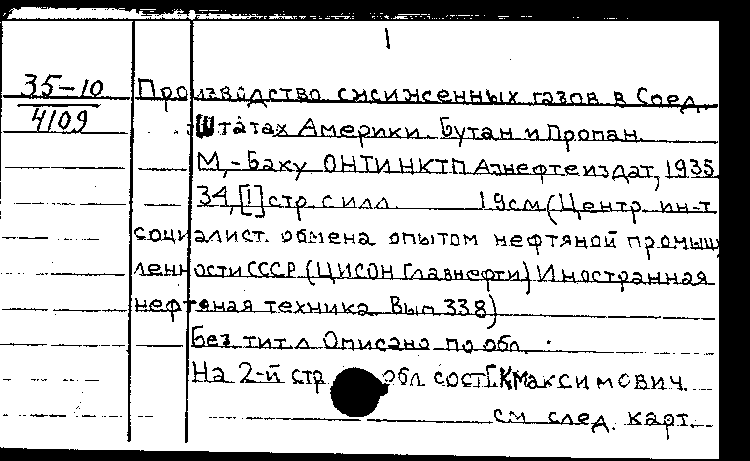 1
35-10
4109
Производство сжиженных газов в Соед.
Штатах Америки. Бутан и Пропан.
М,-Баку ОНТИ НКТП Азнефтеиздат, 1935
34, [1] стр. с илл. 19см (Центр. ин-т
социалист. обмена опытом нефтяной промыш
ленности СССР (ЦИСОН Главнефти) Иностранная
нефтяная техника. Вып 338)
Без тит. л Описано по обл.
На 2-й стр обл сост Г.К Максимович.
см след. карт.